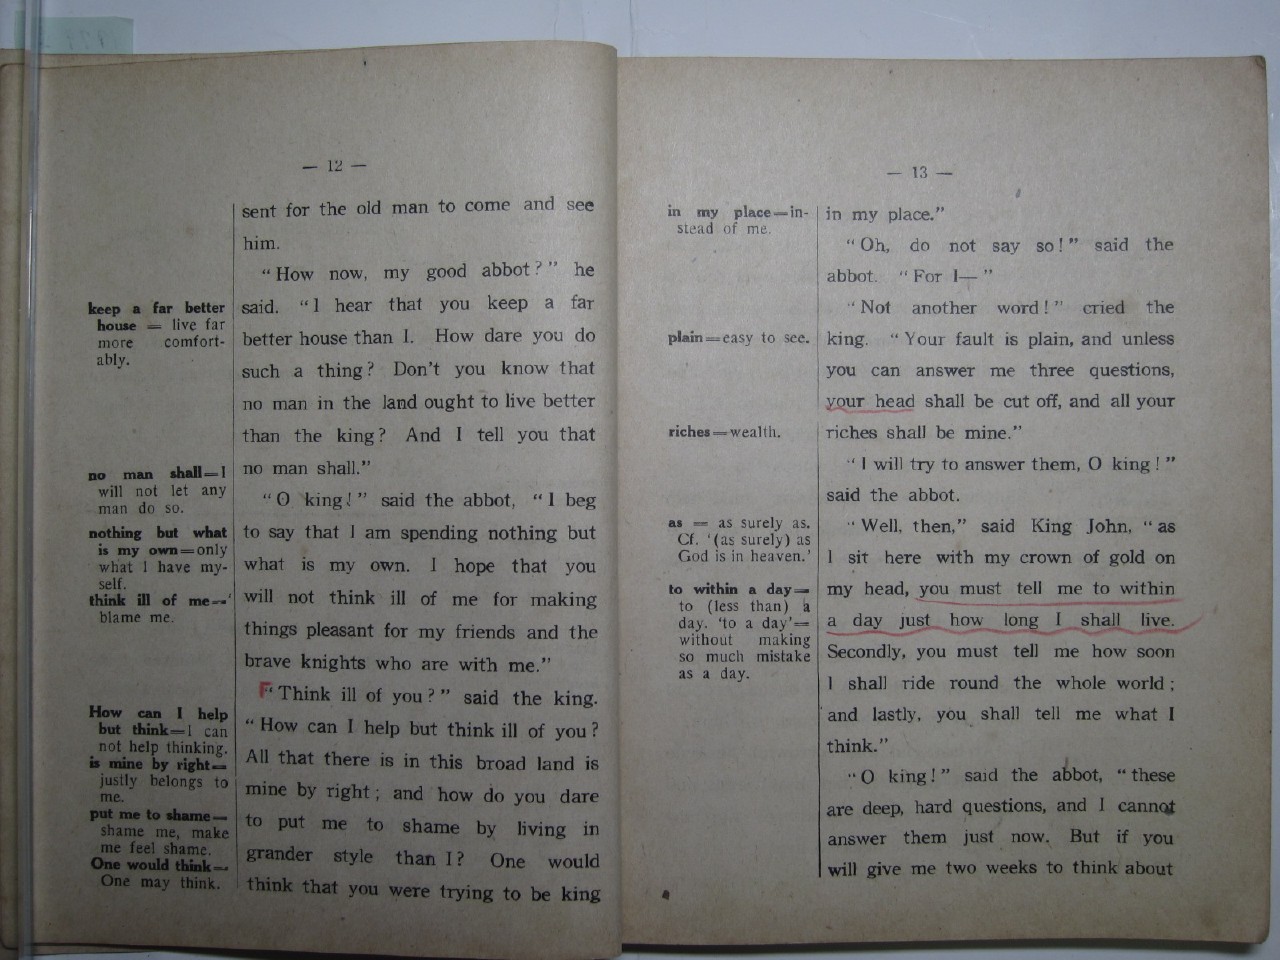 — 12 —
sent for the old man to come and see
him.
“How now, my good abbot?” he
said. “I hear that you keep a far
better house than I. How dare you do
such a thing? Don't you know that
no man in the land ought to live better
than the king? And I tell you that
no man shall.”
“O king!” said the abbot, “I beg
to say that I am spending nothing but
what is my own. I hope that you
will not think ill of me for making
things pleasant for my friends and the
brave knights who are with me.”
“Think ill of you?” said the king.
“How can I help but think ill of you?
All that there is in this broad land is
mine by right; and how do you dare
to put me to shame by living in
grander style than I? One would
think that you were trying to be king
keep a far better
house = live far
more comfort-
ably.
no man shall=I
will not let any
man do so.
nothing but what
is my own=only
what I have my-
self.
think ill of me=
blame me.
How can I help
but think=I can
not help thinking.
is mine by right=
justly belongs to
me.
put me to shame=
shame me, make
me feel shame.
One would think=
One may think.
— 13 —
in my place.”
“Oh, do not say so!” said the
abbot. “For I—”
“Not another word!” cried the
king. “Your fault is plain, and unless
you can answer me three questions,
your head shall be cut off, and all your
riches shall be mine.”
“I will try to answer them, O king!”
said the abbot.
“Well, then,” said King John, “as
I sit here with my crown of gold on
my head, you must tell me to within
a day just how long I shall live.
Secondly, you must tell me how soon
I shall ride round the whole world;
and lastly, you shall tell me what I
think.”
“O king!” said the abbot, “these
are deep, hard questions, and I cannot
answer them just now. But if you
will give me two weeks to think about
in my place=in-
stead of me.
plain=easy to see.
riches=wealth.
as = as surely as.
Cf. '(as surely) as
God is in heaven.'
to within a day=
to (less than) a
day. 'to a day'=
without making
so much mistake
as a day.